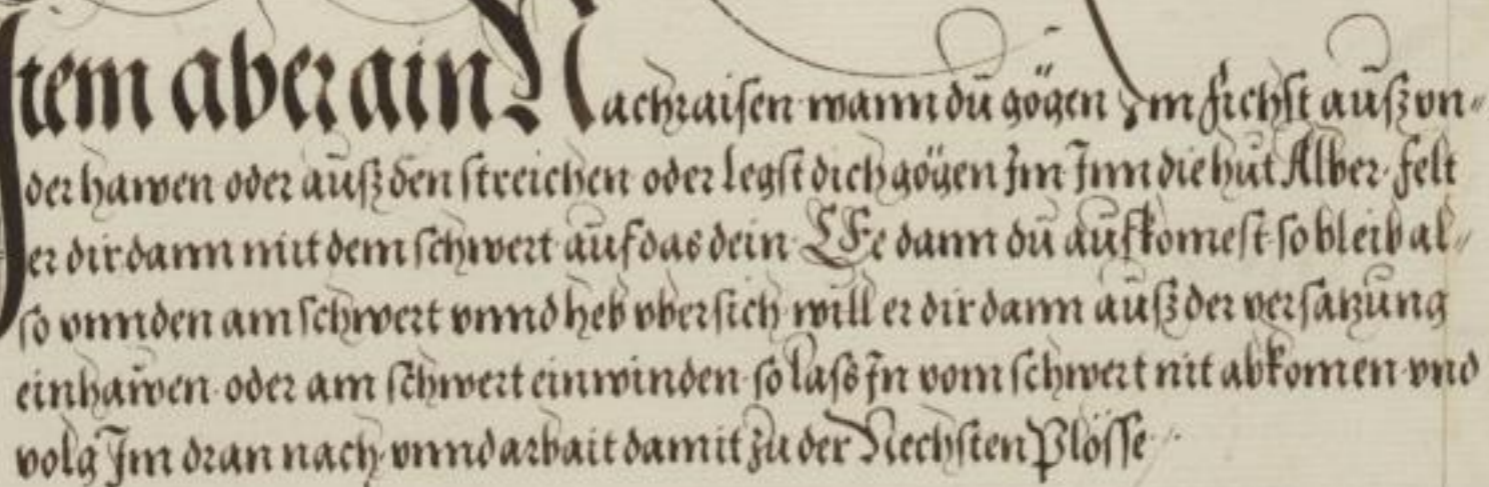 Item aber ain Nachraisen wann dü gögen ym fichst aüß vn〃
der hawen oder aüß den streichen oder legst dich gögen Im Inn die hüt Alber · felt
er dir dann mit dem schwert aüf das dein · EEe dann dü aüfkomest · so bleib al〃
so vnnden am schwert vnnd heb vbersich will er dir dann aüß der versatzüng
einhawen · oder am schwert einwinden · so lass In vom schwert nit abkomen · vnd
volg Im dran nach vnnd arbait damit zu der Nechsten Plösse ·